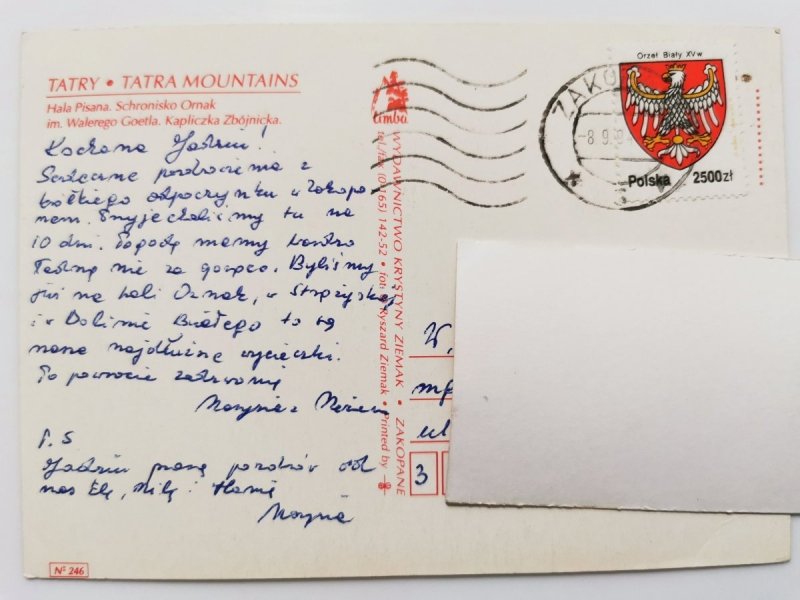 TATRY • TATRA MOUNTAINS
Hala Pisana. Schronisko Ornak
im. Walerego Goetla. Kapliczka Zbójnicka.
Kochana Jadziu!
Serdeczne pozdrowienia z
krótkiego odpoczynku w Zakopa
nem. Przyjechaliśmy tu na
10 dni. Pogodę mamy bardzo
ładną nie za gorąco. Byliśmy
już na hali Ornak, w Strążyskiej
i w Dolinie Białego to są
nasze najdłuższe wycieczki.
Po powrocie zadzwonię
Marysia z
P.S
Jadziu proszę pozdrów od
nas Elę, Milę i Hanię
Marysia
Nº 246
limba
WYDAWNICTWO KRYSTYNY ZIEMAK • ZAKOPANE
tel./fax (0-165) 142-52 • fot. Ryszard Ziemak • Printed by
ZAKO
8.9.
Orzeł Biały XV w
Polska 2500zł
W.
m
ul
3